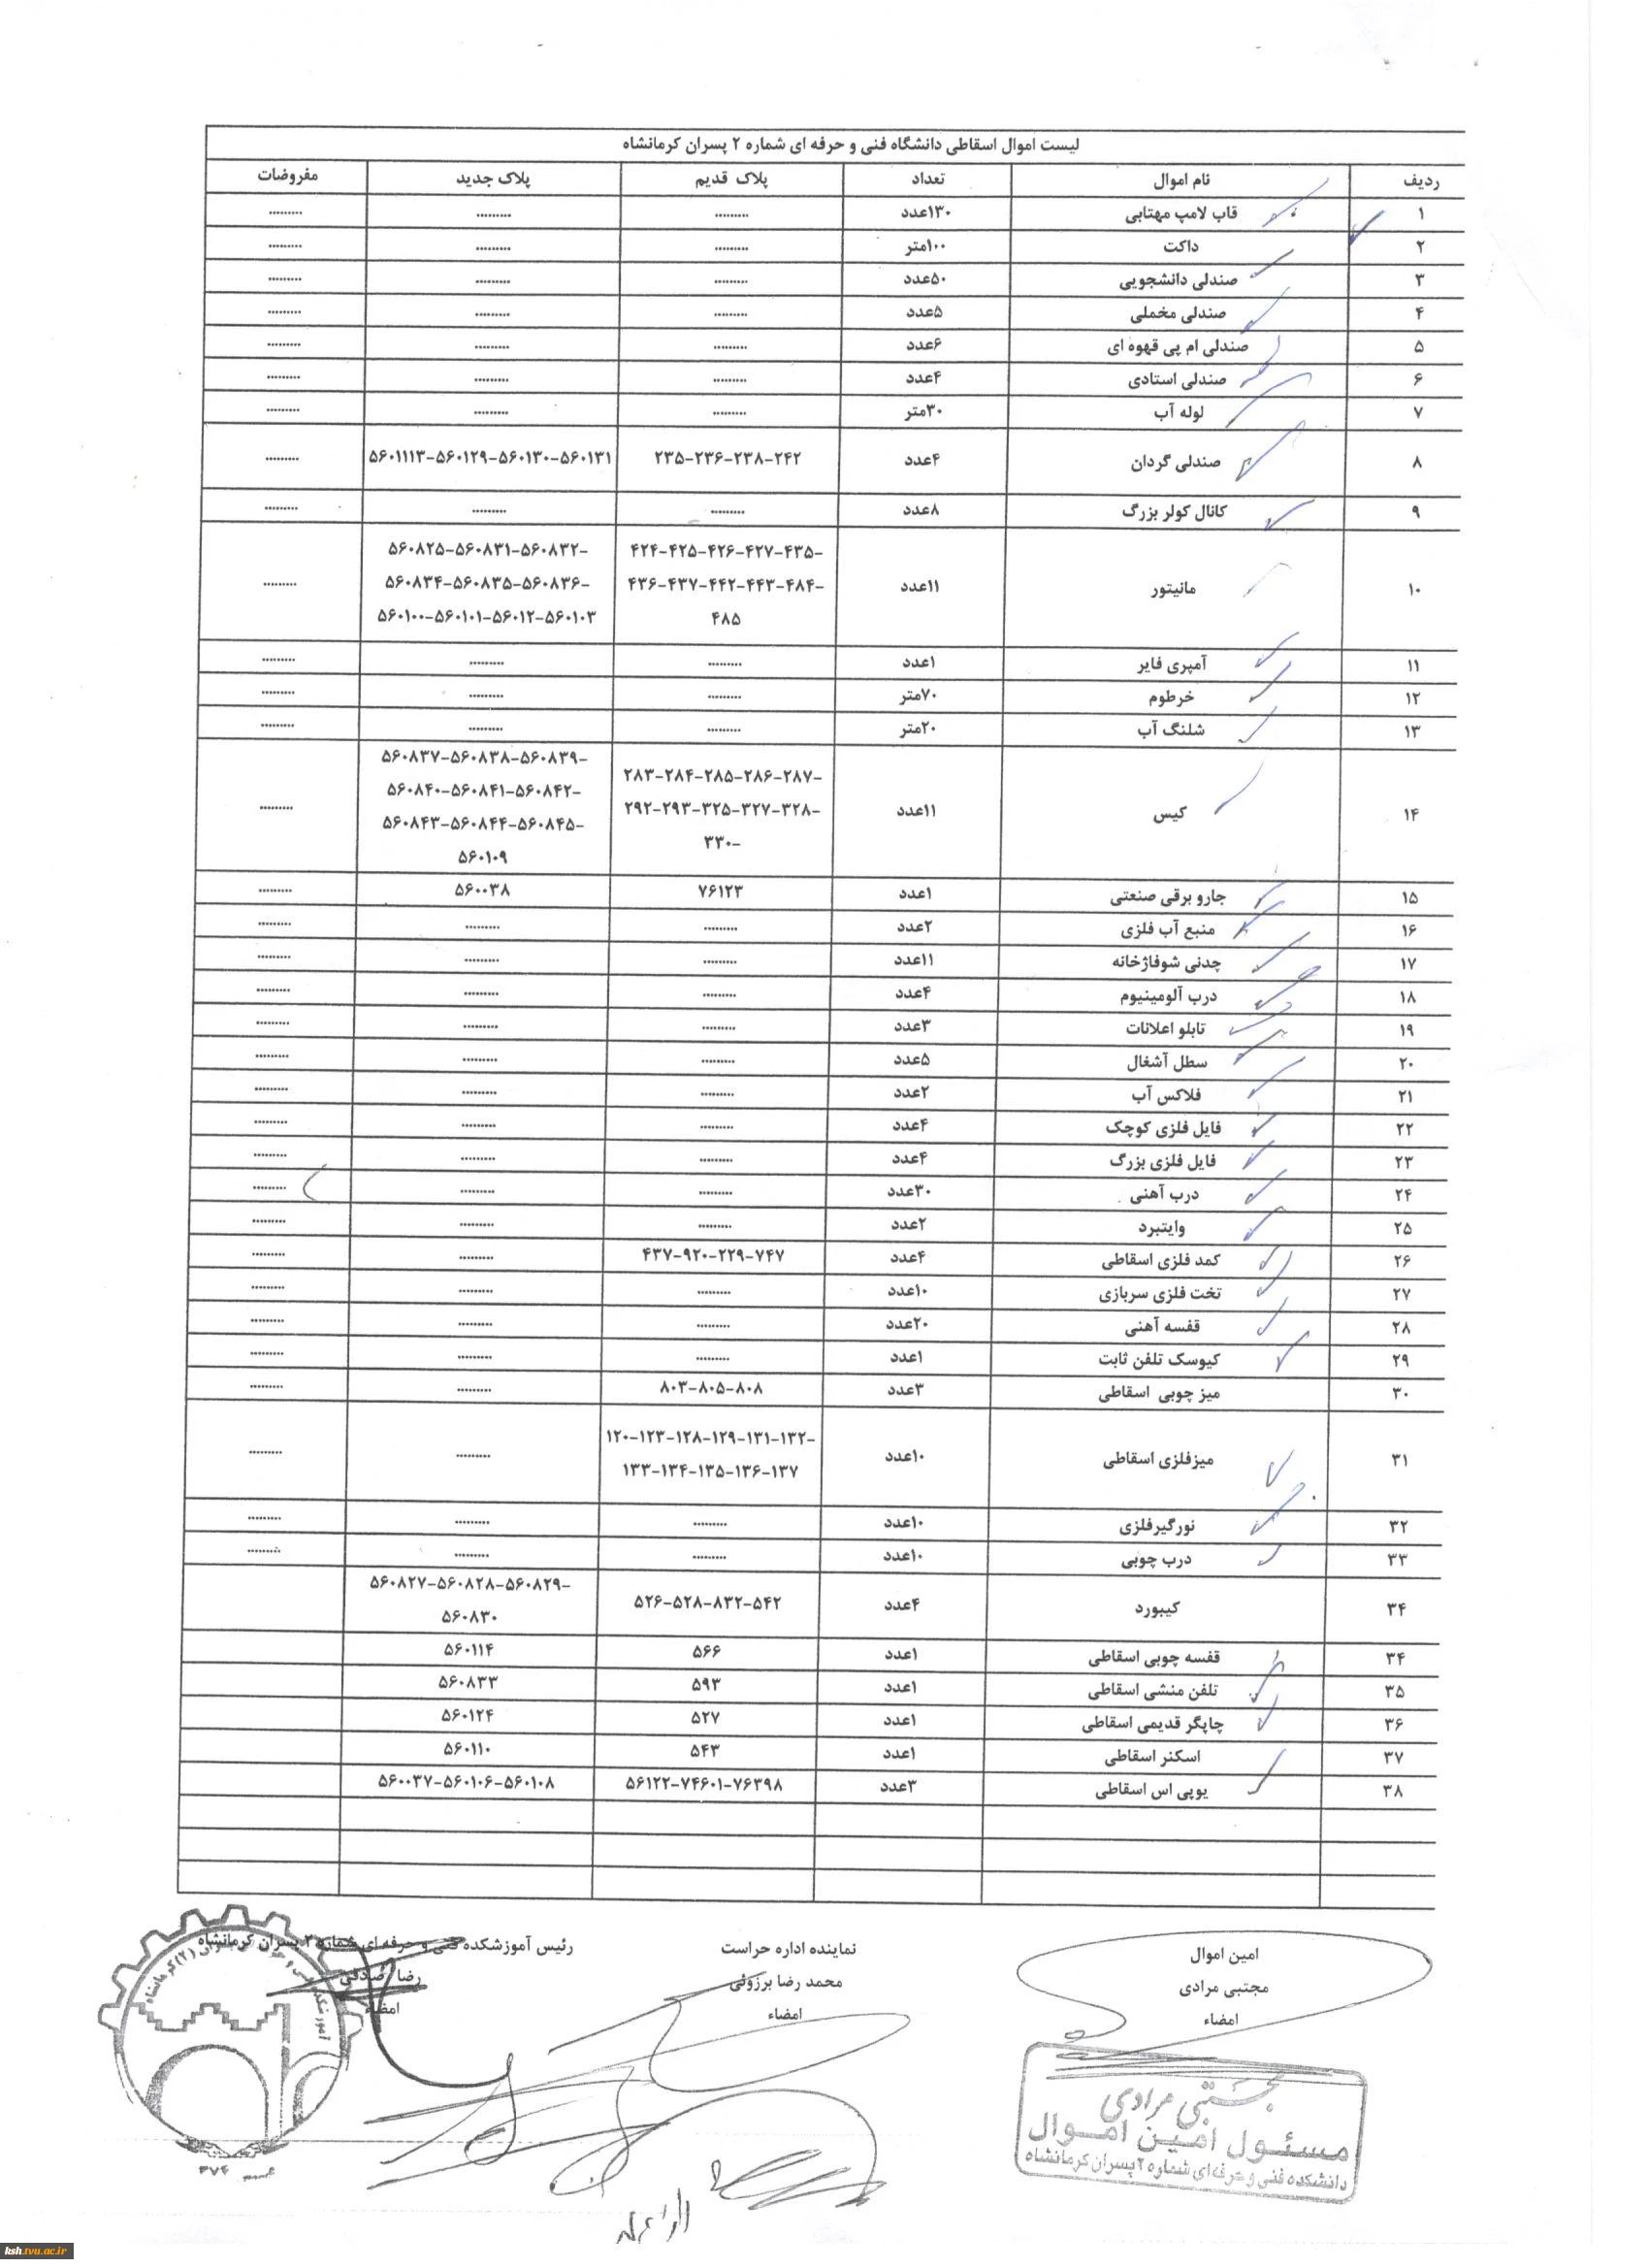 لیست اموال اسقاطی دانشگاه فنی و حرفه ای شماره ۲ پسران کرمانشاه
ردیف نام اموال تعداد پلاک قدیم پلاک جدید مفروضات
۱ قاب لامپ مهتابی ۱۳۰عدد ......... ......... .........
۲ داکت ۱۰۰متر ......... ......... .........
۳ صندلی دانشجویی ۵۰عدد ......... ......... .........
۴ صندلی مخملی ۵عدد ......... ......... .........
۵ صندلی ام پی قهوه ای ۶عدد ......... ......... .........
۶ صندلی استادی ۴عدد ......... ......... .........
۷ لوله آب ۳۰متر ......... ......... .........
۸ صندلی گردان ۴عدد ۲۳۵-۲۳۶-۲۳۸-۲۴۲ ۵۶۰۱۱۱۳-۵۶۰۱۲۹-۵۶۰۱۳۰-۵۶۰۱۳۱ .........
۹ کانال کولر بزرگ ۸عدد ......... ......... .........
۱۰ مانیتور ۱۱عدد ۴۲۴-۴۲۵-۴۲۶-۴۲۷-۴۳۵- ۵۶۰۸۲۵-۵۶۰۸۳۱-۵۶۰۸۳۲- .........
۴۳۶-۴۳۷-۴۴۲-۴۴۳-۴۸۴- ۵۶۰۸۳۴-۵۶۰۸۳۵-۵۶۰۸۳۶-
۴۸۵ ۵۶۰۱۰۰-۵۶۰۱۰۱-۵۶۰۱۲-۵۶۰۱۰۳
۱۱ آمپری فایر ۱عدد ......... ......... .........
۱۲ خرطوم ۷۰متر ......... ......... .........
۱۳ شلنگ آب ۲۰متر ......... ......... .........
۱۴ کیس ۱۱عدد ۲۸۳-۲۸۴-۲۸۵-۲۸۶-۲۸۷- ۵۶۰۸۳۷-۵۶۰۸۳۸-۵۶۰۸۳۹- .........
۲۹۲-۲۹۳-۳۲۵-۳۲۷-۳۲۸- ۵۶۰۸۴۰-۵۶۰۸۴۱-۵۶۰۸۴۲-
۳۳۰- ۵۶۰۸۴۳-۵۶۰۸۴۴-۵۶۰۸۴۵-
۵۶۰۱۰۹
۱۵ جارو برقی صنعتی ۱عدد ۷۶۱۲۳ ۵۶۰۰۳۸ .........
۱۶ منبع آب فلزی ۲عدد ......... ......... .........
۱۷ چدنی شوفاژخانه ۱۱عدد ......... ......... .........
۱۸ درب آلومینیوم ۴عدد ......... ......... .........
۱۹ تابلو اعلانات ۳عدد ......... ......... .........
۲۰ سطل آشغال ۵عدد ......... ......... .........
۲۱ فلاکس آب ۲عدد ......... ......... .........
۲۲ فایل فلزی کوچک ۴عدد ......... ......... .........
۲۳ فایل فلزی بزرگ ۴عدد ......... ......... .........
۲۴ درب آهنی ۳۰عدد ......... ......... .........
۲۵ وایتبرد ۲عدد ......... ......... .........
۲۶ کمد فلزی اسقاطی ۴عدد ۴۳۷-۹۲۰-۲۲۹-۷۴۷ ......... .........
۲۷ تخت فلزی سربازی ۱۰عدد ......... ......... .........
۲۸ قفسه آهنی ۲۰عدد ......... ......... .........
۲۹ کیوسک تلفن ثابت ۱عدد ......... ......... .........
۳۰ میز چوبی اسقاطی ۳عدد ۸۰۳-۸۰۵-۸۰۸ ......... .........
۳۱ میزفلزی اسقاطی ۱۰عدد ۱۲۰-۱۲۳-۱۲۸-۱۲۹-۱۳۱-۱۳۲- ......... .........
۱۳۳-۱۳۴-۱۳۵-۱۳۶-۱۳۷
۳۲ نورگیرفلزی ۱۰عدد ......... ......... .........
۳۳ درب چوبی ۱۰عدد ......... ......... .........
۳۴ کیبورد ۴عدد ۵۲۶-۵۲۸-۸۳۲-۵۴۲ ۵۶۰۸۲۷-۵۶۰۸۲۸-۵۶۰۸۲۹-
۵۶۰۸۳۰
۳۴ قفسه چوبی اسقاطی ۱عدد ۵۶۶ ۵۶۰۱۱۴
۳۵ تلفن منشی اسقاطی ۱عدد ۵۹۳ ۵۶۰۸۳۳
۳۶ چاپگر قدیمی اسقاطی ۱عدد ۵۲۷ ۵۶۰۱۲۴
۳۷ اسکنر اسقاطی ۱عدد ۵۴۳ ۵۶۰۱۱۰
۳۸ یوپی اس اسقاطی ۳عدد ۵۶۱۲۲-۷۴۶۰۱-۷۶۳۹۸ ۵۶۰۰۳۷-۵۶۰۱۰۶-۵۶۰۱۰۸
امین اموال نماینده اداره حراست رئیس آموزشکده فنی و حرفه ای شماره ۲ پسران کرمانشاه
مجتبی مرادی محمد رضا برزوئی رضا صدقی
امضاء امضاء امضاء
مجتبی مرادی
مسئول امین اموال
دانشکده فنی و حرفه ای شماره ۲ پسران کرمانشاه
ksh.tvu.ac.ir